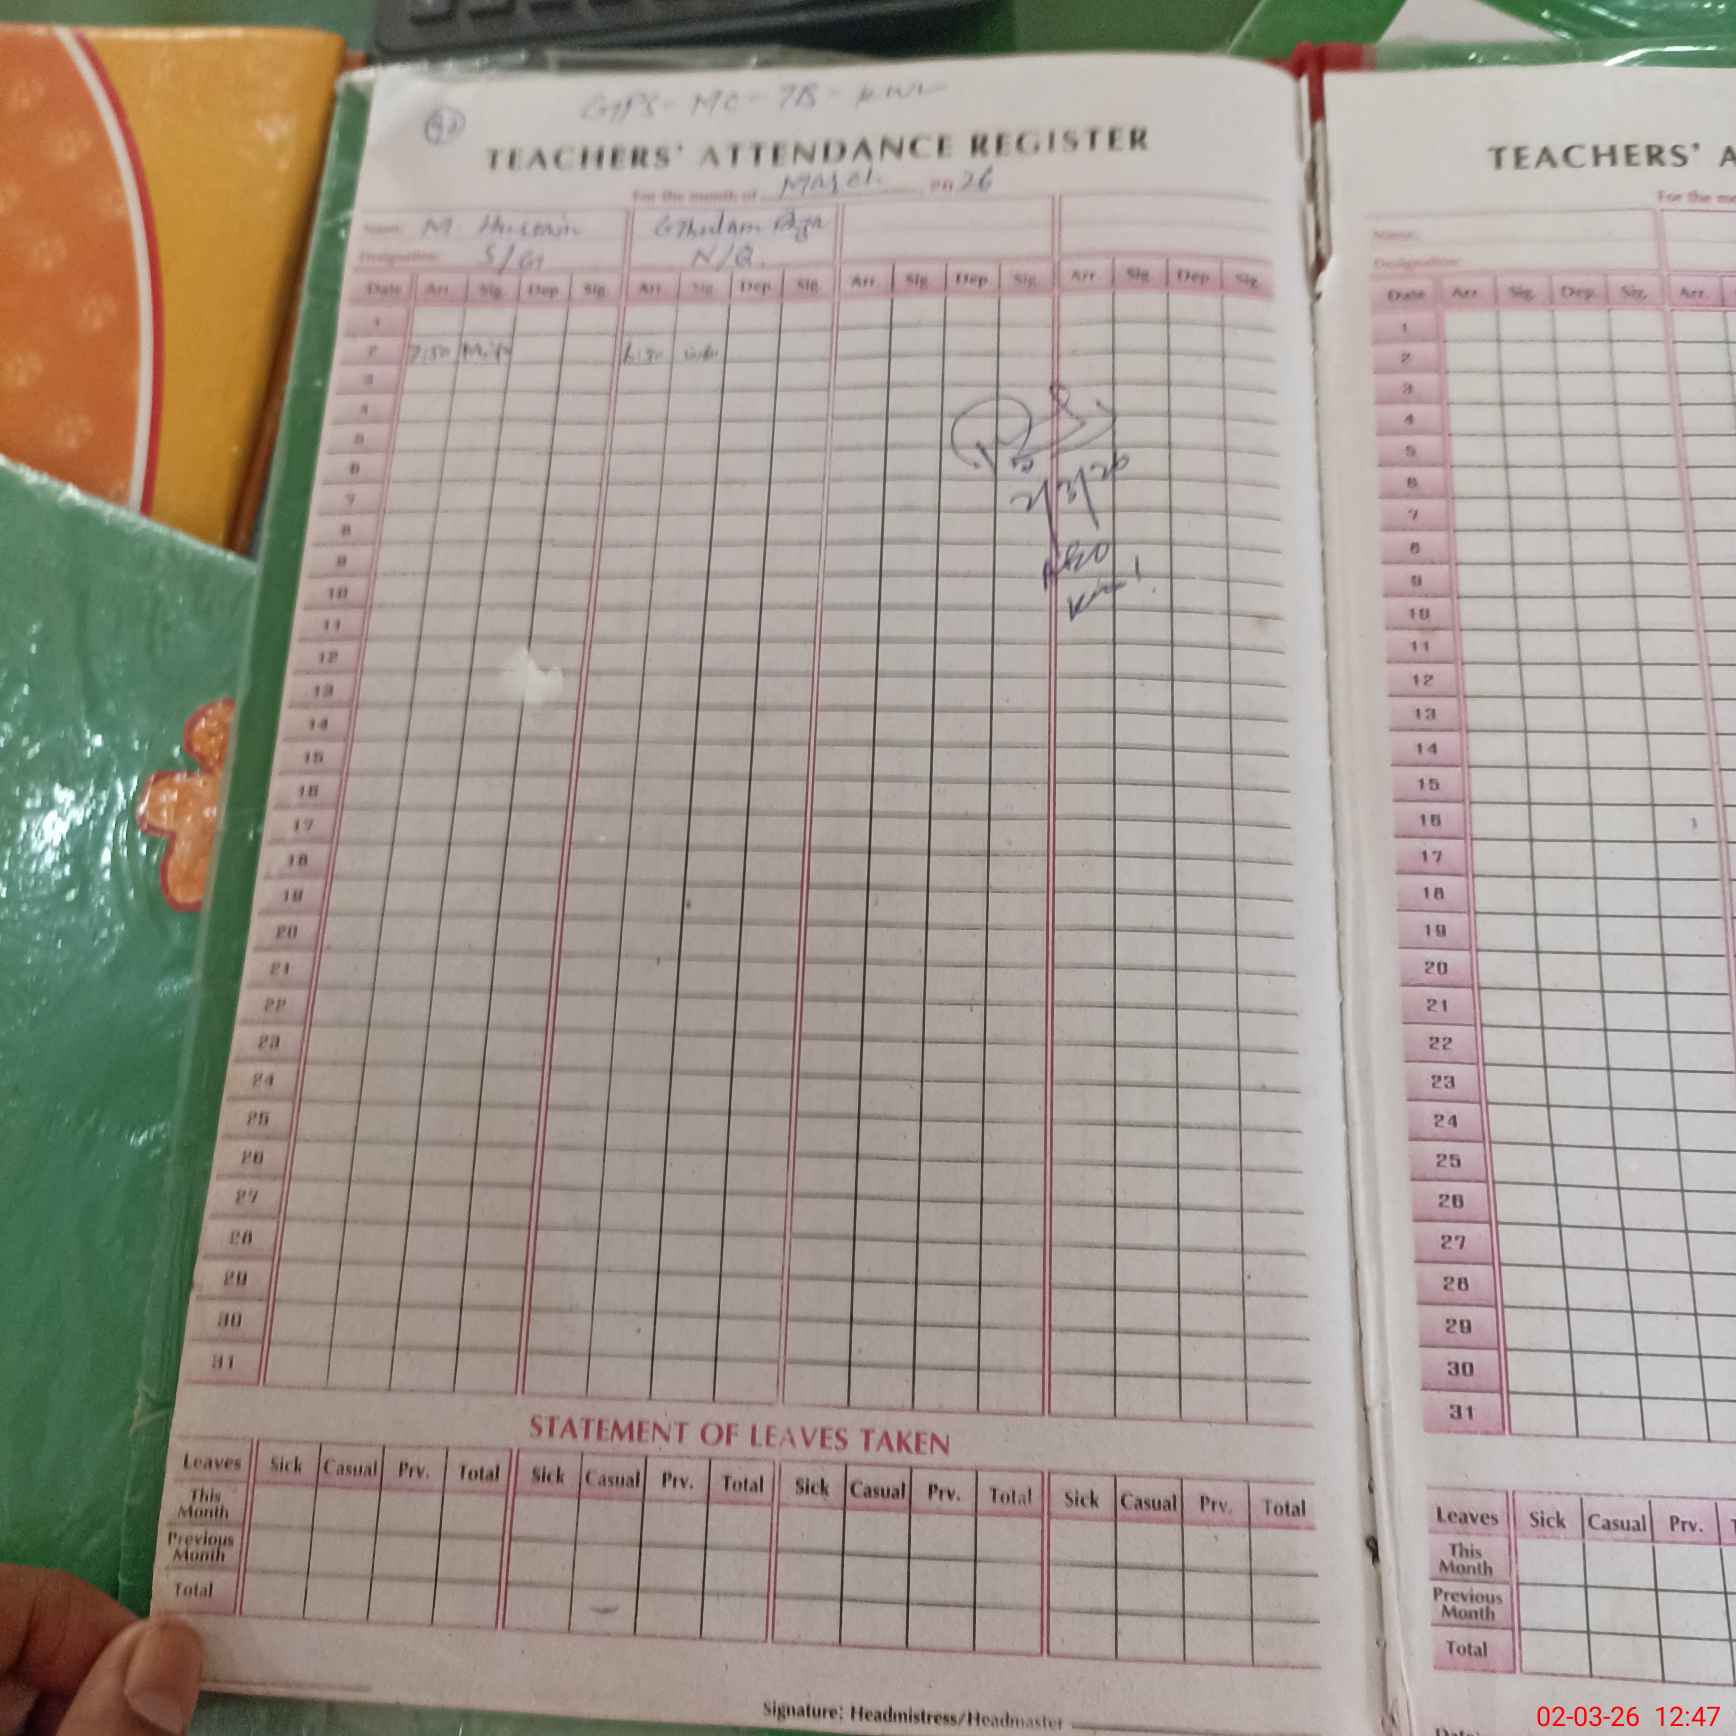 GPS - MC - 7B - KWL
TEACHERS' ATTENDANCE REGISTER
For the month of March 26
Name: M Hussain Ghulam
Designation: S/G N/Q
Date Arr. Sig. Dep. Sig. Arr. Sig. Dep. Sig. Arr. Sig. Dep. Sig. Arr. Sig. Dep. Sig.
1
2 7:50 6:30
3
4
5
6
7
8
9
10
11
12
13
14
15
16
17
18
19
20
21
22
23
24
25
26
27
28
29
30
31
2/3/26
STATEMENT OF LEAVES TAKEN
Leaves Sick Casual Prv. Total Sick Casual Prv. Total Sick Casual Prv. Total Sick Casual Prv. Total
This Month
Previous Month
Total
Signature: Headmistress/Headmaster
TEACHERS' A
For the mo
Name:
Designation:
Date Arr. Sig. Dep. Sig. Arr.
1
2
3
4
5
6
7
8
9
10
11
12
13
14
15
16
17
18
19
20
21
22
23
24
25
26
27
28
29
30
31
Leaves Sick Casual Prv. T
This Month
Previous Month
Total
02-03-26 12:47